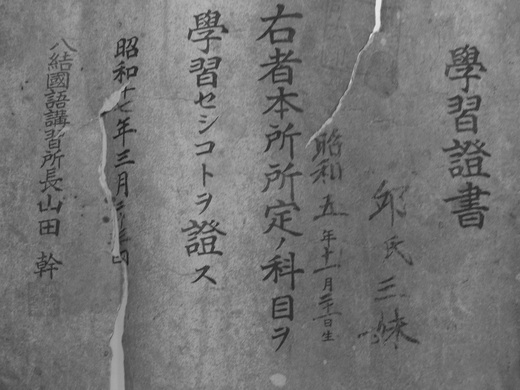 學習證書
邱氏三妹
昭和五年十一月二十二日生
右者本所所定ノ科目ヲ
學習セシコトヲ證ス
昭和十七年三月
八結國語講習所長山田幹